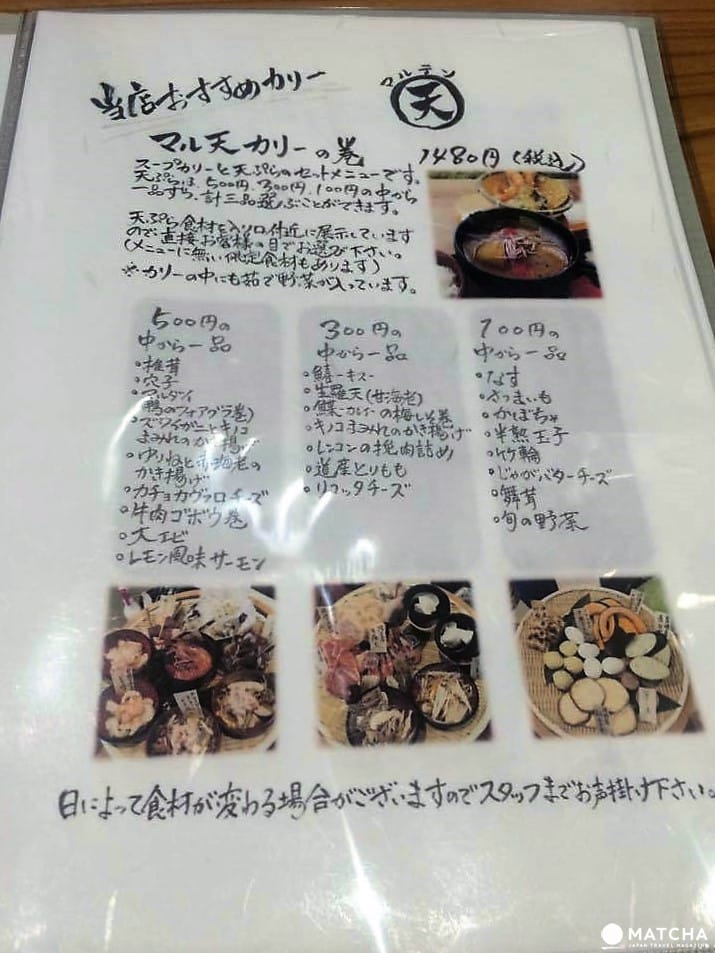 当店おすすめカリー
マルテン
天
マル天カリーの巻
1480円(税込)
スープカリーと天ぷらのセットメニューです。
天ぷらは、500円、300円、100円の中から
一品ずつ、計三品選ぶことができます。
天ぷら食材を入り口付近に展示しています
ので直接お客様の目でお選び下さい。
(メニューに無い限定食材もあります)
※カリーの中にも茹で野菜が入っています。
500円の
中から一品
・椎茸
・穴子
・マルタンイ
鴨のフォアグラ巻)
・ズワイガニとキノコ
まみれのかき揚げ
・ゆりねと赤海老の
かき揚げ
・カチョカヴァロチーズ
・牛肉ゴボウ巻
・大エビ
・レモン風味サーモン
300円の
中から一品
・鱚-キス-
・生羅天(甘海老)
・鰈-カレイ-の梅しそ巻
・キノコまみれのかき揚げ
・レンコンの挽肉詰め
・道産とりもも
・リコッタチーズ
100円の
中から一品
・なす
・さつまいも
・かぼちゃ
・半熟玉子
・竹輪
・じゃがバターチーズ
・舞茸
・旬の野菜
日によって食材が変わる場合がございますのでスタッフまでお声掛け下さい。
MATCHA
JAPAN TRAVEL MAGAZINE